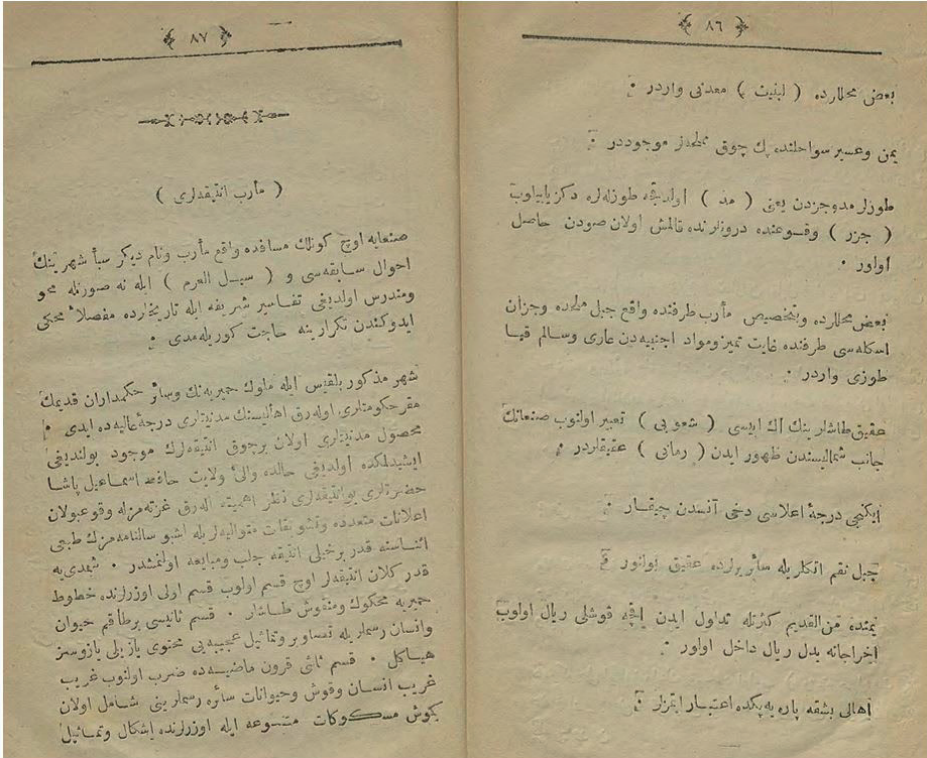 ٨٦
بعض محللرده ( لينيت ) معدنى واردر .
يمن وعسير سواحلنده پك چوق مملحه‌لر موجوددر .
طوزلر مدوجزدن يعنى ( مد ) اولدقجه طوزله‌لره دكز ياييلوب
( جزر ) وقوعنده درونلرنده قالمش اولان صودن حاصل
اولور .
بعض محللرده وبتخصيص مأرب طرفنده واقع جبل ملحده وجزان
اسكله‌سى طرفنده غايت تميز ومواد اجنبيه‌دن عارى وسالم قيا
طوزى واردر .
عقيق طاشلرينك اك ايسى ( شعوبى ) تعبير اولنوب صنعانك
جانب شماليسندن ظهور ايدن ( رمانى ) عقيقلردر .
ايكنجى درجهٔ اعلاسى دخى آنسدن چيقار .
جبل نقم اتكلريله سائر يرلرده عقيق بولنور .
يمنده من‌القديم كثرتله تداول ايدن اقچه قوشلى ريال اولوب
اخراجاته بدل ريال داخل اولور .
اهالى بشقه پاره يه پكده اعتبار ايتمزلر .
٨٧
( مأرب انتيقه‌لرى )
صنعايه اوچ كونلك مسافه‌ده واقع مأرب ونام ديكر سبأ شهرينك
احوال سابقه‌سى و ( سيل العرم ) ايله نه صورتله محو
ومندرس اولديغى تفاسير شريفه ايله تاريخلرده مفصلاً محكى
ايدوكندن تكرارينه حاجت كوريله‌مدى .
شهر مذكور بلقيس ايله ملوك حميريه‌نك وسائر حكمداران قديمك
مقر حكومتلرى اوله‌رق اهاليسنك مدنيتلرى درجهٔ عاليه‌ده ايدى .
محصول مدنيتلرى اولان برچوق انتيقه‌لرك موجود بولنديغى
ايشيدلمكده اولديغى حالده والئ ولايت حافظ اسماعيل پاشا
حضرتلرى بو انتيقه‌لرى نظر اهميته اله‌رق غزته‌مزله وقوعبولان
اعلانات متعدده وتشويقات متواليه‌لريله اشبو سالنامه‌مزك طبعى
اثناسنه قدر برخيلى انتيقه جلب ومبايعه اولنمشدر . شمدى‌يه
قدر كلان انتيقه‌لر اوچ قسم اولوب قسم اولى اوزرلرنده خطوط
حميريه محكوك ومنقوش طاشلر . قسم ثانيسى برطاقم حيوان
وانسان رسملريله تصاوير وتماثيل عجيبه‌يى محتوى يازيلى يازوسز
هياكل . قسم ثالثى قرون ماضيه‌ده ضرب اولنوب غريب
غريب انسان وقوش وحيوانات سائره رسملرينى شامل اولان
كوش مسكوكات متنوعه ايله اوزرلرنده اشكال وتماثيل